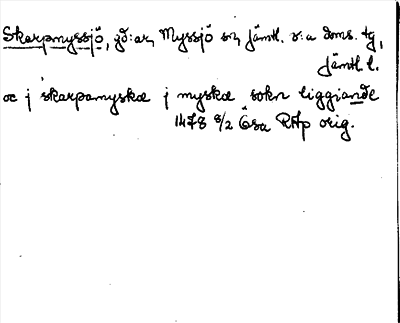 Skarpmyssjö, gd:ar, Myssjö sn, Jämtl. s:a doms. tg,
Jämtl. l.
oc j skarpamyskæ j myskæ sokn liggiande
1478 8/2 Åsa RAp orig.